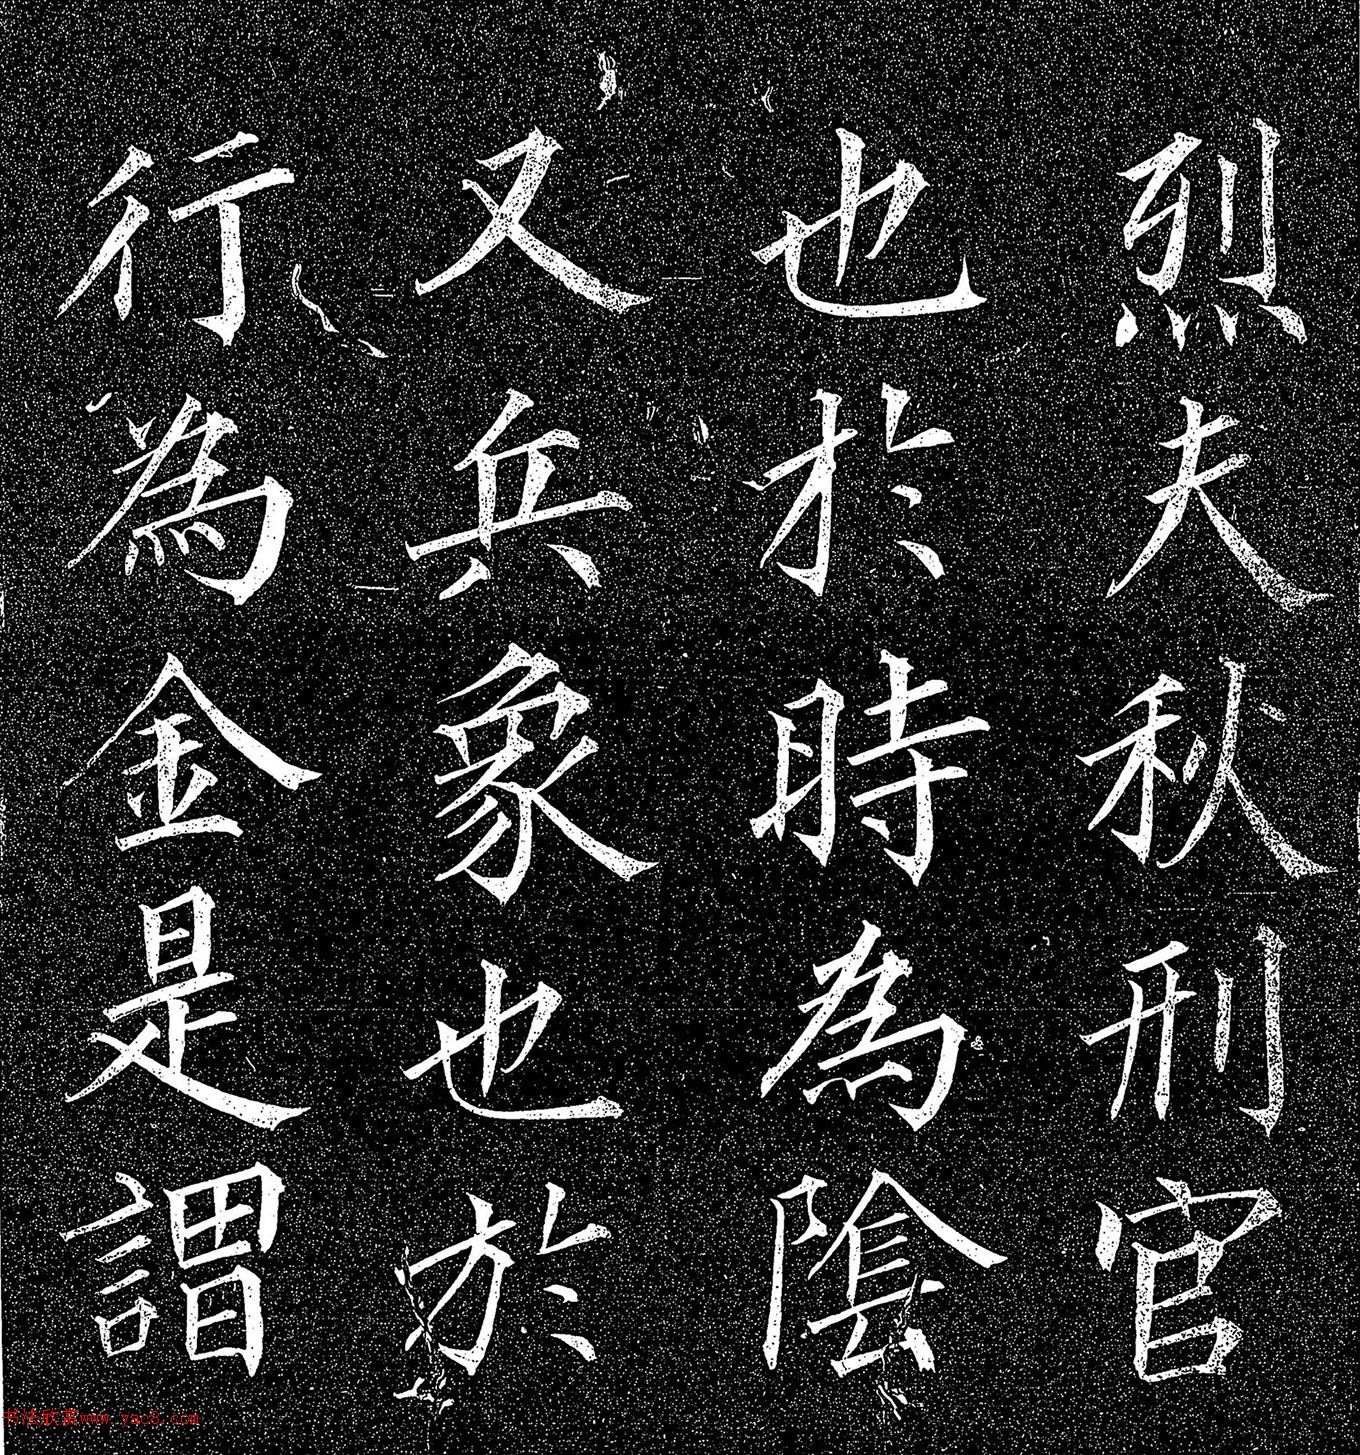 烈夫秋刑官
也於時為陰
又兵象也於
行為金是謂
书法欣赏www.yac8.com